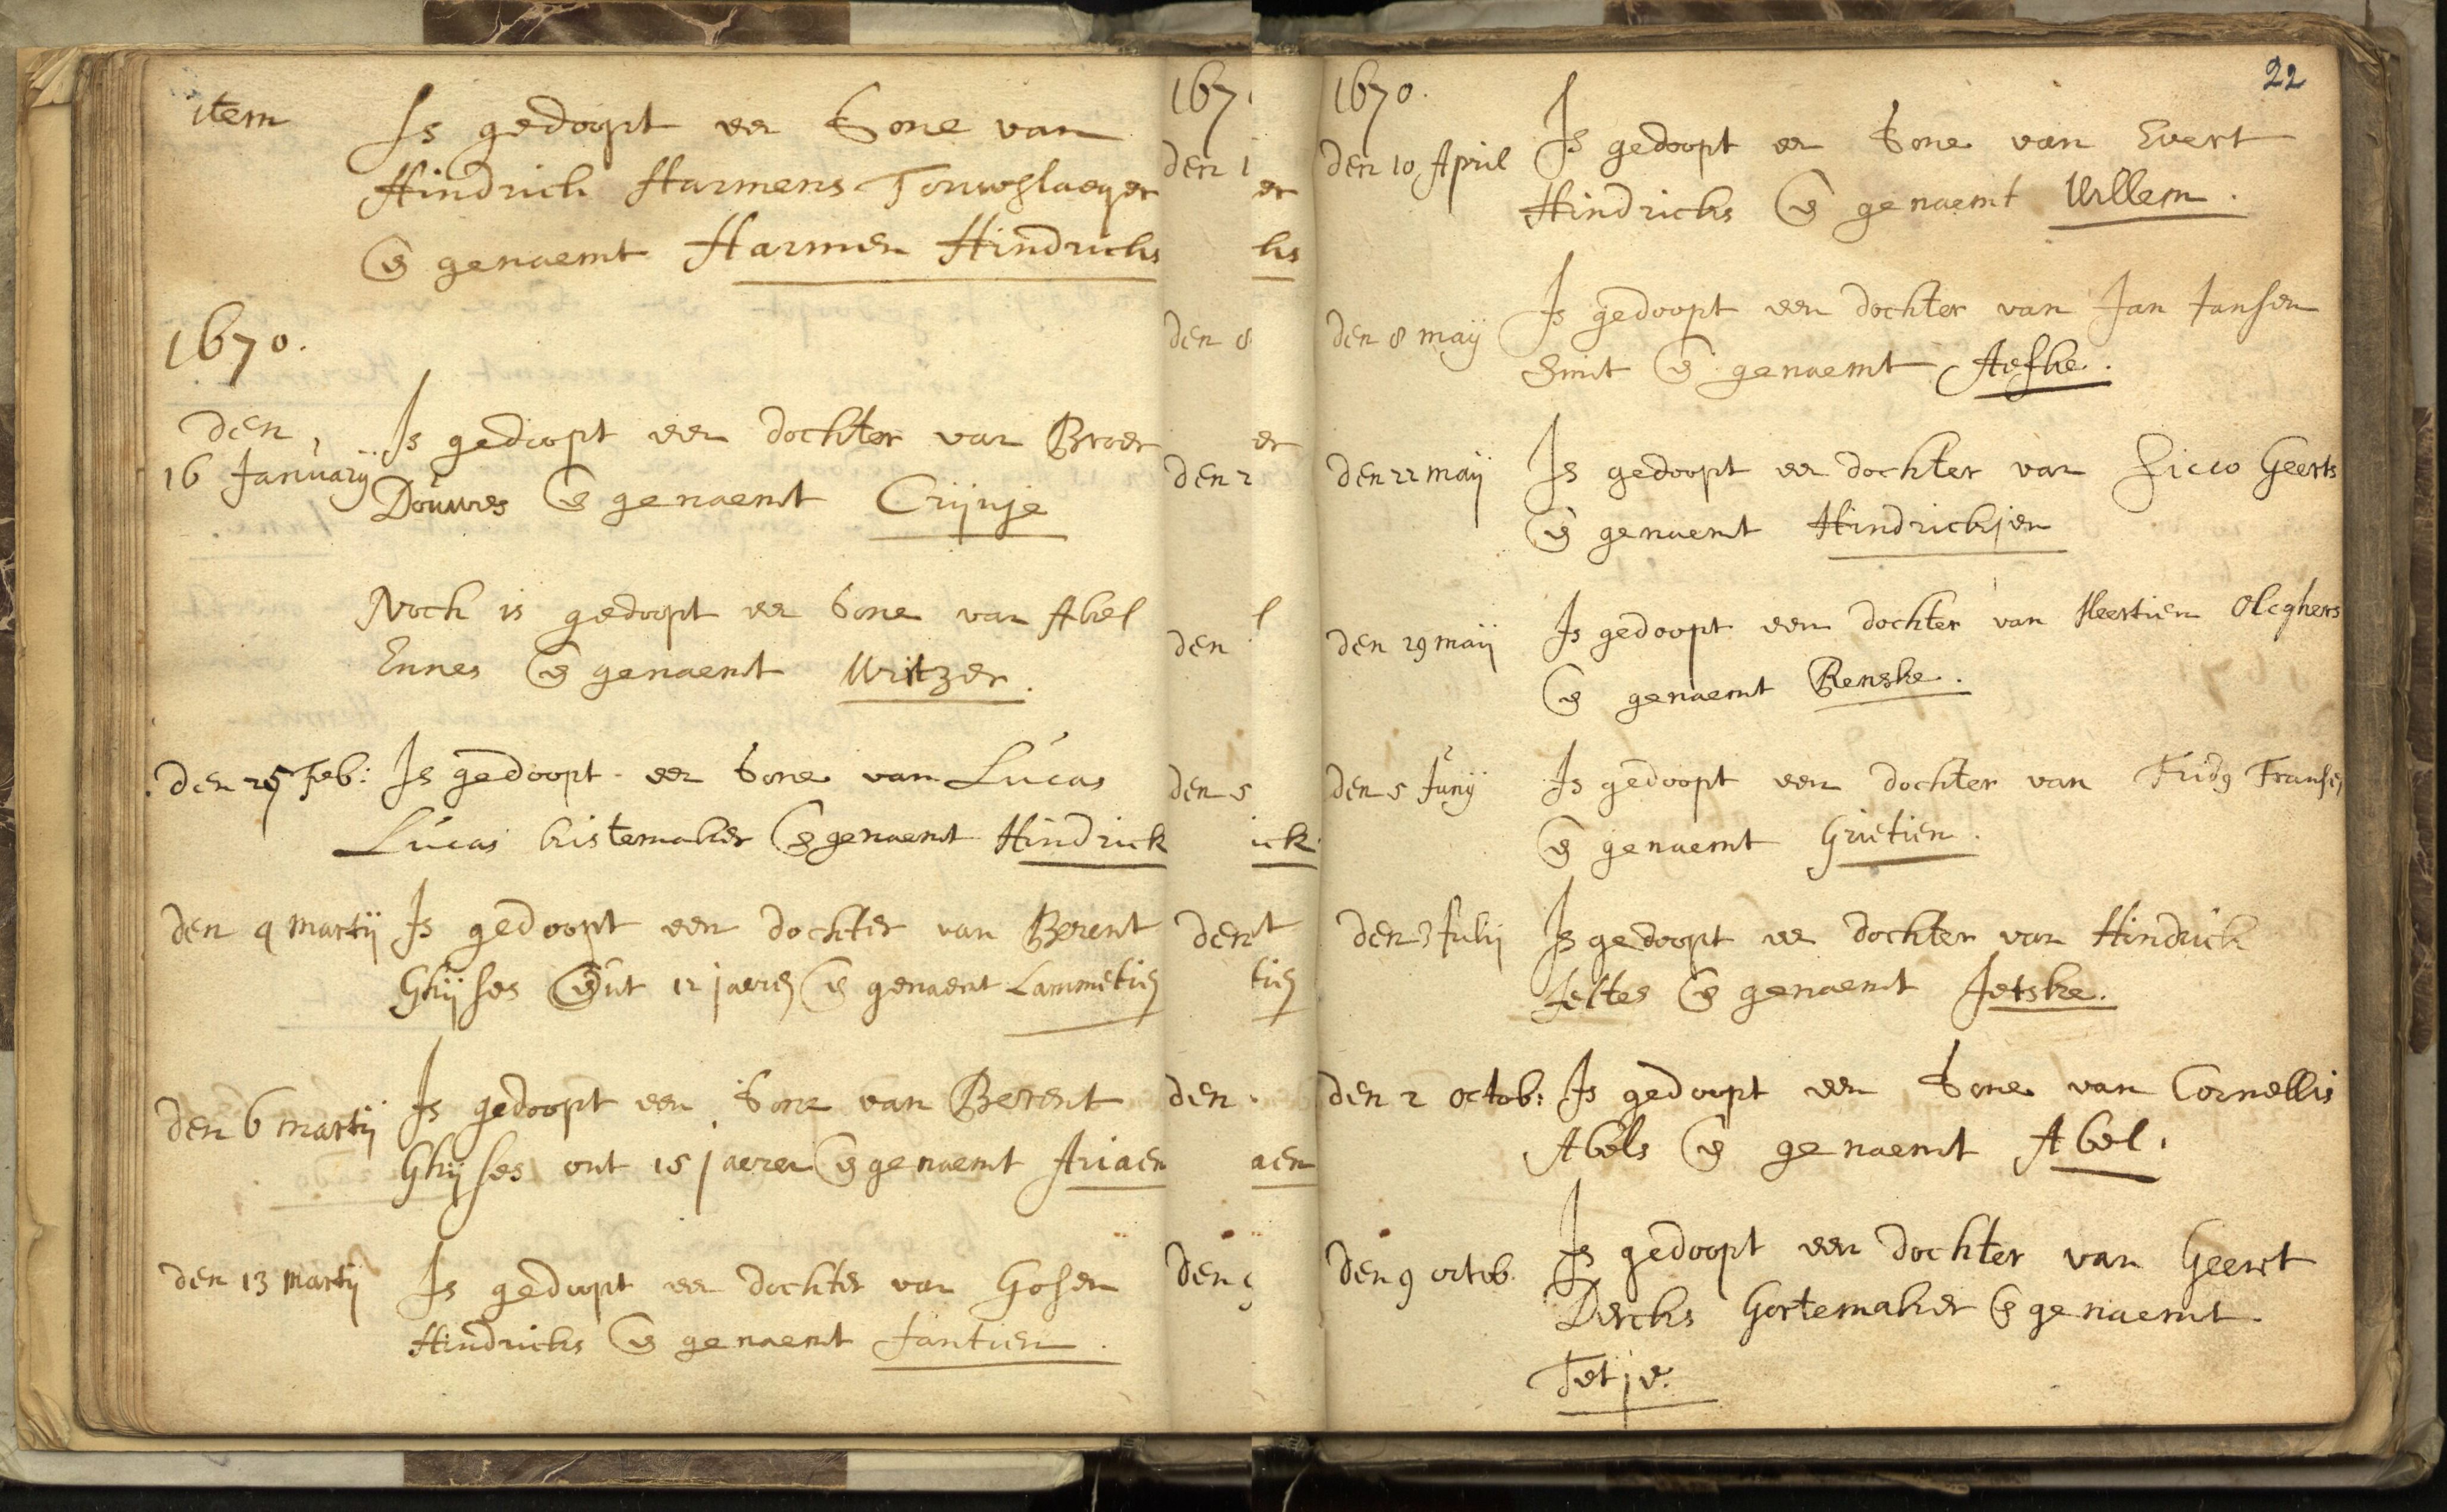 item
Is gedoopt een Sone van
Hindrich Harmens Touwslaeger
en genaemt Harmen Hindrichs
1670.
den
16 Januarij
Is gedoopt een dochter van Broer
Douwes en genaemt Crijnje
Noch is gedoopt een Sone van Abel
Ennes en genaemt Writzer.
den 25 Feb:
Is gedoopt een Sone van Lucas
Lucas kistemaker en genaemt Hindrick
den 4 Martij
Is gedoopt een dochter van Berent
Ghijses out 12 jaeren en genaemt Lammetien
den 6 Martij
Is gedoopt een Sone van Berent
Ghijses out 15 jaeren en genaemt Ariaen
den 13 Martij
Is gedoopt een dochter van Gosen
Hindrichs en genaemt Jantien.
22
1670.
den 10 April
Is gedoopt en Sone van Evert
Hindricks en genaemt Willem.
den 8 maij
Is gedoopt een dochter van Jan Jansen
Smit en genaemt Aefke.
den 22 maij
Is gedoopt een dochter van Sicco Geerts
en genaemt Hindrickjen
den 29 maij
Is gedoopt een dochter van Meertien Olcghers
en genaemt Renske.
den 5 Junij
Is gedoopt een dochter van Fridg Fransen
en genaemt Grietien.
den 3 Julij
Is gedoopt een dochter van Hindrick
Jeltes en genaemt Jetske.
den 2 octob:
Is gedoopt een Sone van Cornellis
Abels en genaemt Abel.
den 9 octob.
Is gedoopt een dochter van Geert
Dercks Gortemaker en genaemt
Tetje.